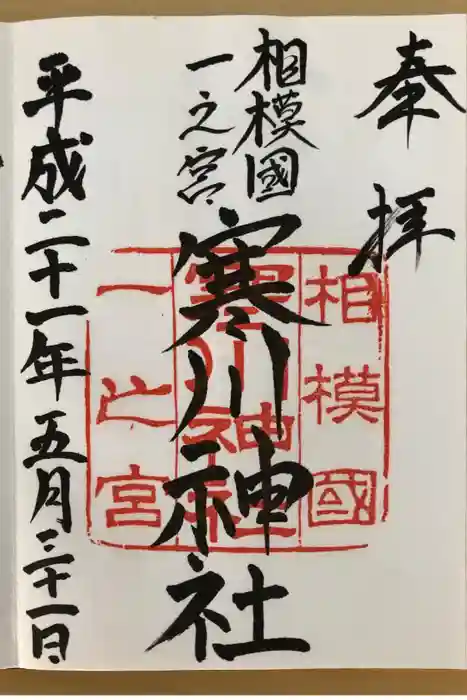 奉拝
相模國
一之宮
寒川神社
平成二十一年五月三十一日
相模國
寒川神社
一之宮